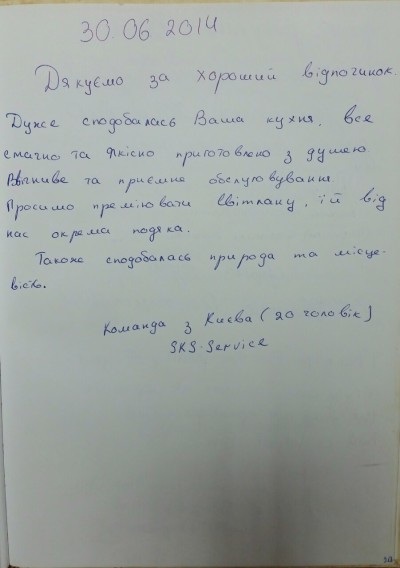 30.06 2014
Дякуємо за хороший відпочинок.
Дуже сподобалась Ваша кухня, все
смачно та якісно приготовлено з душею.
Ввічливе та приємне обслуговування.
Просимо преміювати Світлану, їй від
нас окрема подяка.
Також сподобалась природа та місце-
вість.
Команда з Києва (20 чоловік)
SKS-Service